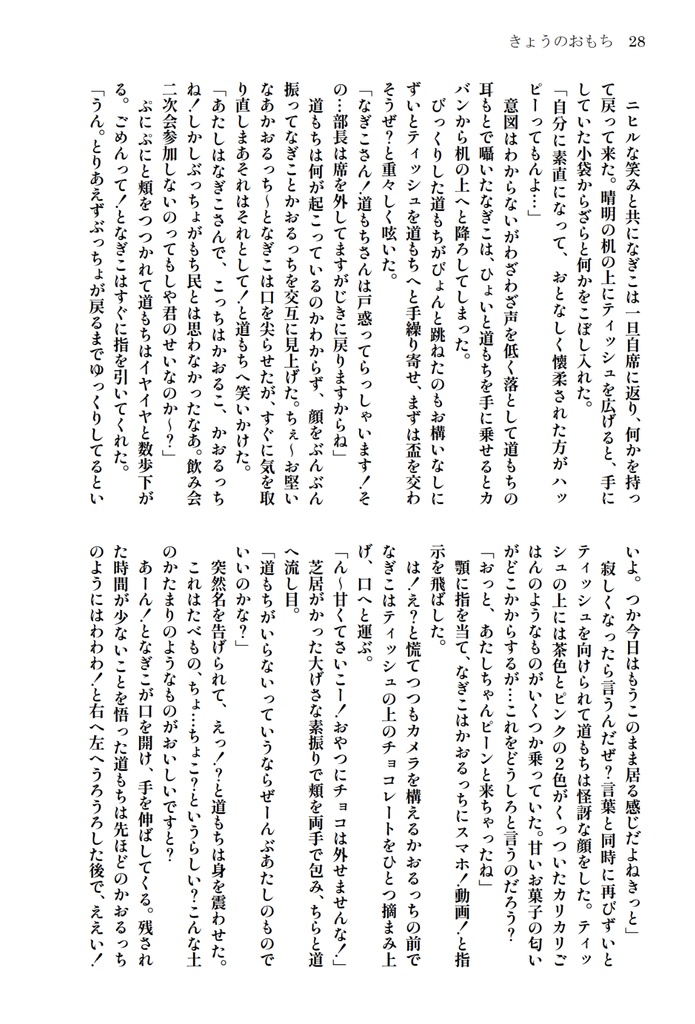 きょうのおもち 28
ニヒルな笑みと共になぎこは一旦自席に返り、何かを持っ
て戻って来た。晴明の机の上にティッシュを広げると、手に
していた小袋からざらと何かをこぼし入れた。
「自分に素直になって、おとなしく懐柔された方がハッ
ピーってもんよ…」
意図はわからないがわざわざ声を低く落として道もちの
耳もとで囁いたなぎこは、ひょいと道もちを手に乗せるとカ
バンから机の上へと降ろしてしまった。
びっくりした道もちがぴょんと跳ねたのもお構いなしに
ずいとティッシュを道もちへと手繰り寄せ、まずは盃を交わ
そうぜ？と重々しく呟いた。
「なぎこさん！道もちさんは戸惑ってらっしゃいます！そ
の…部長は席を外してますがじきに戻りますからね」
道もちは何が起こっているのかわからず、顔をぶんぶん
振ってなぎことかおるっちを交互に見上げた。ちぇ～お堅い
なあかおるっち～となぎこは口を尖らせたが、すぐに気を取
り直しまあそれはそれとして！と道もちへ笑いかけた。
「あたしはなぎこさんで、こっちはかおるこ、かおるっち
ね！しかしぶっちょがもち民とは思わなかったなあ。飲み会
二次会参加しないのってもしや君のせいなのか～？」
ぷにぷにと頬をつつかれて道もちはイヤイヤと数歩下が
る。ごめんって！となぎこはすぐに指を引いてくれた。
「うん。とりあえずぶっちょが戻るまでゆっくりしてるとい
いよ。つか今日はもうこのまま居る感じだよねきっと」
寂しくなったら言うんだぜ？言葉と同時に再びずいと
ティッシュを向けられて道もちは怪訝な顔をした。ティッ
シュの上には茶色とピンクの２色がくっついたカリカリご
はんのようなものがいくつか乗っていた。甘いお菓子の匂い
がどこかからするが…これをどうしろと言うのだろう？
「おっと、あたしちゃんピーンと来ちゃったね」
顎に指を当て、なぎこはかおるっちにスマホ！動画！と指
示を飛ばした。
は！え？と慌てつつもカメラを構えるかおるっちの前で
なぎこはティッシュの上のチョコレートをひとつ摘まみ上
げ、口へと運ぶ。
「ん～甘くてさいこー！おやつにチョコは外せませんな！」
芝居がかった大げさな素振りで頬を両手で包み、ちらと道
へ流し目。
「道もちがいらないっていうならぜーんぶあたしのもので
いいのかな？」
突然名を告げられて、えっ！？と道もちは身を震わせた。
これはたべもの、ちょ…ちょこ？というらしい？こんな土
のかたまりのようなものがおいしいですと？
あーん！となぎこが口を開け、手を伸ばしてくる。残され
た時間が少ないことを悟った道もちは先ほどのかおるっち
のようにはわわわ！と右へ左へうろうろした後で、ええい！